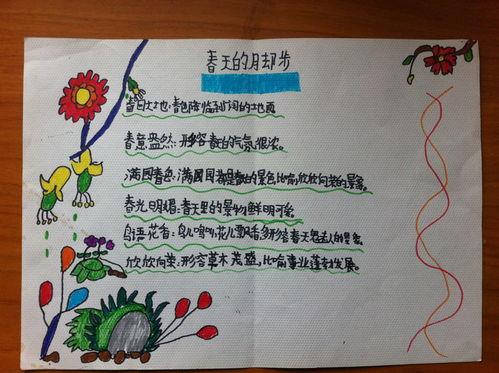 春天的脚步
春回大地:春色降临到大间的地面
春意盎然:形容春天的气氛很浓。
满园春色:满园园都是春天的景色比喻欣欣向荣的景象。
春光明媚:春天里的景物鲜明可爱
鸟语花香:鸟儿鸣叫,花儿飘香,多形容春天怒人的景象。
欣欣向荣:形容草木茂盛,比喻事业蓬勃发展。